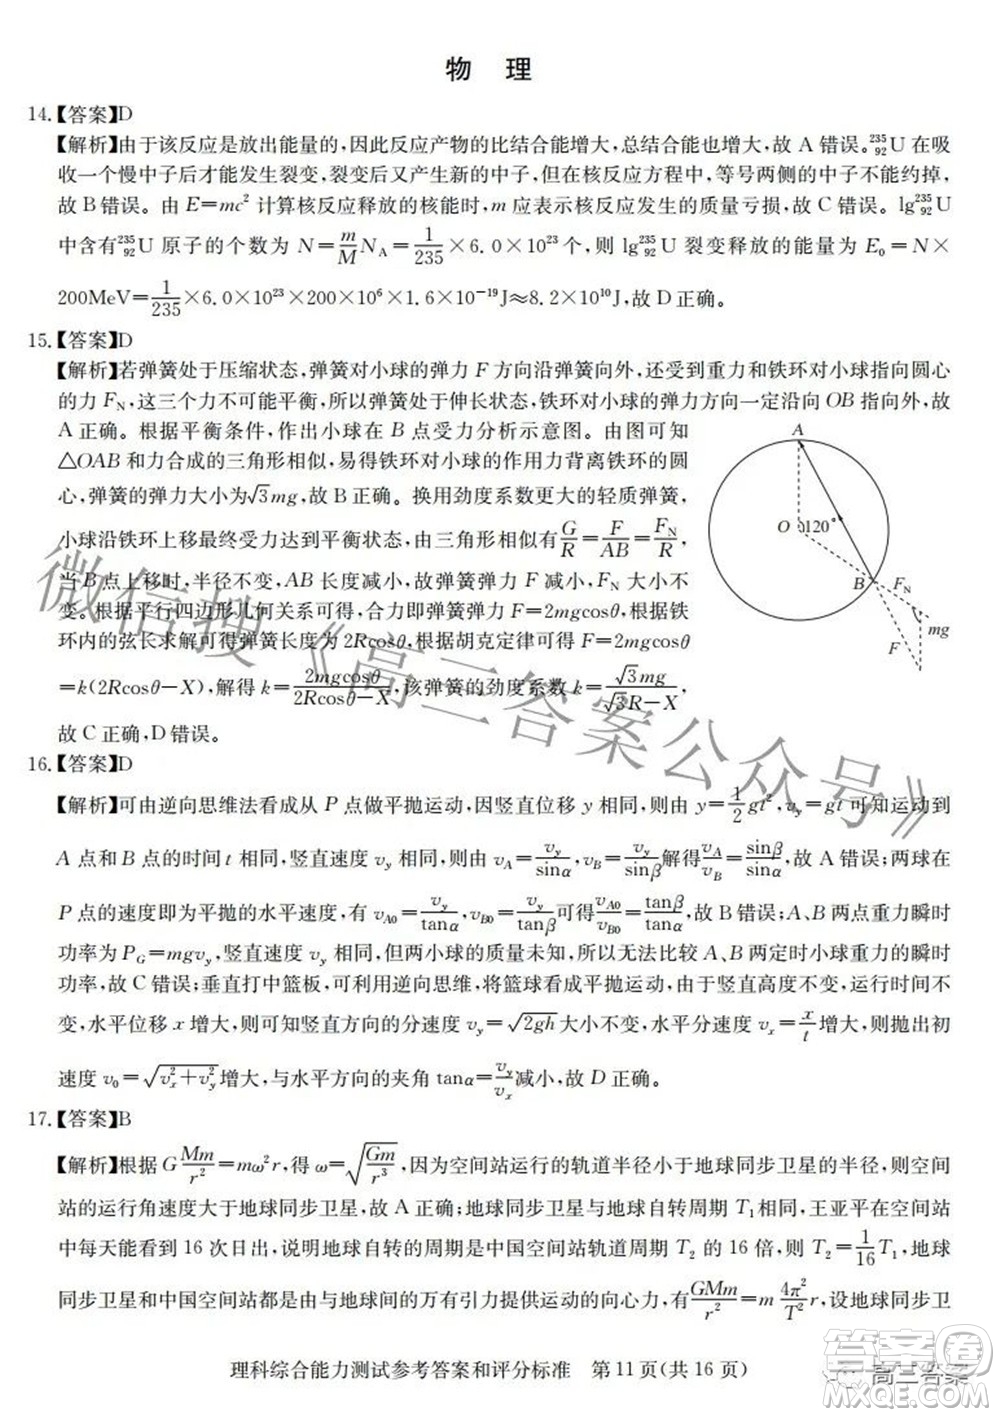 物 理
14.【答案】D
【解析】由于该反应是放出能量的,因此反应产物的比结合能增大,总结合能也增大,故 A 错误。²³⁵₉₂U 在吸
收一个慢中子后才能发生裂变,裂变后又产生新的中子,但在核反应方程中,等号两侧的中子不能约掉,
故 B 错误。由 E=mc² 计算核反应释放的核能时,m 应表示核反应发生的质量亏损,故 C 错误。lg²³⁵₉₂U
中含有²³⁵₉₂U 原子的个数为 N=m/M N_A=1/235×6.0×10²³个,则 lg²³⁵₉₂U 裂变释放的能量为 E₀=N×
200MeV=1/235×6.0×10²³×200×10⁶×1.6×10⁻¹⁹J≈8.2×10¹⁰J,故 D 正确。
15.【答案】D
【解析】若弹簧处于压缩状态,弹簧对小球的弹力 F 方向沿弹簧向外,还受到重力和铁环对小球指向圆心
的力 F_N,这三个力不可能平衡,所以弹簧处于伸长状态,铁环对小球的弹力方向一定沿向 OB 指向外,故
A 正确。根据平衡条件,作出小球在 B 点受力分析示意图。由图可知
△OAB 和力合成的三角形相似,易得铁环对小球的作用力背离铁环的圆
心,弹簧的弹力大小为√3mg,故 B 正确。换用劲度系数更大的轻质弹簧,
小球沿铁环上移最终受力达到平衡状态,由三角形相似有G/R=F/AB=F_N/R,
当 B 点上移时,半径不变,AB 长度减小,故弹簧弹力 F 减小,F_N 大小不
变。根据平行四边形几何关系可得,合力即弹簧弹力 F=2mgcosθ,根据铁
环内的弦长求解可得弹簧长度为 2Rcosθ,根据胡克定律可得 F=2mgcosθ
=k(2Rcosθ-X),解得 k=2mgcosθ/(2Rcosθ-X),该弹簧的劲度系数 k=√3mg/(√3R-X),
故 C 正确,D 错误。
A
O 120°
B
F_N
F
mg
16.【答案】D
【解析】可由逆向思维法看成从 P 点做平抛运动,因竖直位移 y 相同,则由 y=1/2gt²,v_y=gt 可知运动到
A 点和 B 点的时间 t 相同,竖直速度 v_y 相同,则由 v_A=v_y/sinα,v_B=v_y/sinβ解得v_A/v_B=sinβ/sinα,故 A 错误;两球在
P 点的速度即为平抛的水平速度,有 v_A0=v_y/tanα,v_B0=v_y/tanβ可得v_A0/v_B0=tanβ/tanα,故 B 错误;A、B 两点重力瞬时
功率为 P_G=mgv_y,竖直速度 v_y 相同,但两小球的质量未知,所以无法比较 A、B 两定时小球重力的瞬时
功率,故 C 错误;垂直打中篮板,可利用逆向思维,将篮球看成平抛运动,由于竖直高度不变,运动时间不
变,水平位移 x 增大,则可知竖直方向的分速度 v_y=√2gh大小不变,水平分速度 v_x=x/t增大,则抛出初
速度 v₀=√(v_x²+v_y²)增大,与水平方向的夹角 tanα=v_y/v_x减小,故 D 正确。
17.【答案】B
【解析】根据 G Mm/r²=mω²r,得 ω=√(Gm/r³),因为空间站运行的轨道半径小于地球同步卫星的半径,则空间
站的运行角速度大于地球同步卫星,故 A 正确;地球同步卫星与地球自转周期 T₁相同,王亚平在空间站
中每天能看到 16 次日出,说明地球自转的周期是中国空间站轨道周期 T₂ 的 16 倍,则 T₂=1/16T₁,地球
同步卫星和中国空间站都是由与地球间的万有引力提供运动的向心力,有GMm/r²=m 4π²/T² r,设地球同步卫
理科综合能力测试参考答案和评分标准 第 11 页(共 16 页)
微信搜《高三答案公众号》
高三答案
MXQE.COM